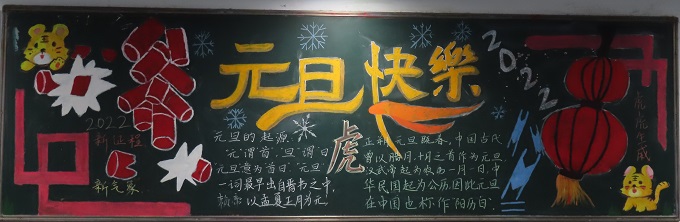 元旦快樂
2022
2022
新征程
新气象
虎
虎虎生威
元旦的起源
"元"谓"首","旦"谓"日"
"元旦"意为"首日"."元旦"
一词最早出自晋书之中,
以孟夏正月为元,
正朔元旦
中国古代
曾以腊月、十月之首作为元旦,
汉武帝起为农历一月一日,中
华民国起为公历,因此元旦
在中国也称作"阳历日".